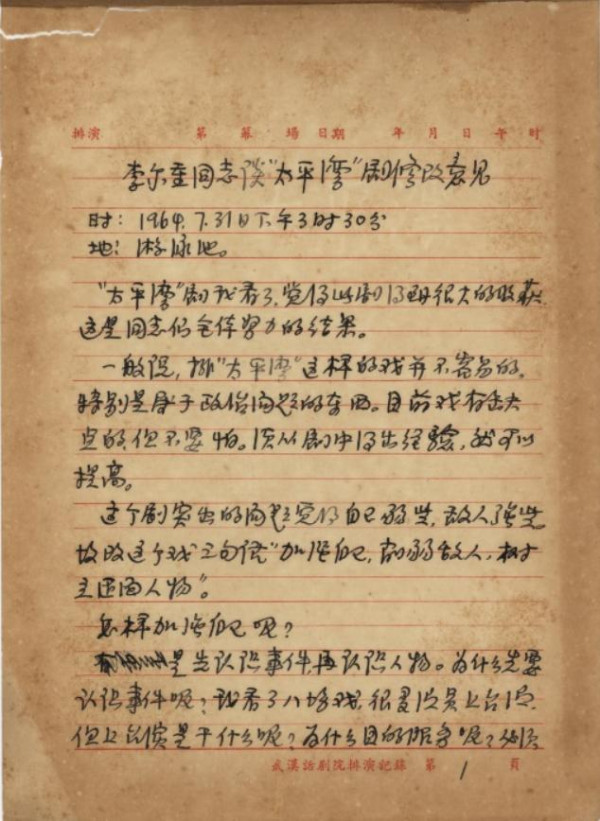 排演 第 幕 場 日期 年 月 日 午 时
李尔重同志谈"太平湾"剧修改意见
时：1964.7.31日下午3时30分
地：游泳池。
"太平湾"剧我看了,觉得此剧得到很大的收获
这是同志们全体努力的结果。
一般说,排"太平湾"这样的戏并不容易的。
特别是属于政治问题的东西。目前戏有缺
点的,但不要怕。须从剧中得出经验,就可以
提高。
这个剧突出的问题觉得自己弱些,敌人强些
故改这个戏三句话"加强自己,削弱敌人,树
立正面人物"。
怎样加强自己呢？
是先认识事件,再认识人物。为什么先要
认识事件呢？我看了八场戏,很多演员上台演,
但上台演是干什么呢？为什么目的服务呢？必须
武漢話剧院排演記錄 第 1 頁